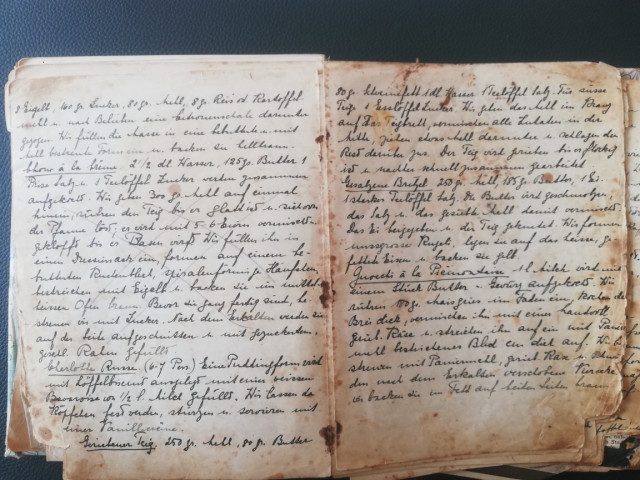 3 Eigelb, 40 gr. Zucker, 80 gr. Mehl, 8 gr. Reis od. Kartoffel-
mehl u. nach Belieben eine Citronenschale darunter
gezogen. Wir füllen die Masse in eine bebutterte u. mit
Mehl bestreute Formen u. backen sie hellbraun.
Choux à la Crème. 2 1/2 dl Wasser, 125 gr. Butter 1
Prise Salz u. 1 Teelöffel Zucker werden zusammen
aufgekocht. Wir geben 300 gr. Mehl auf einmal
hinein, rühren den Teig bis er glatt ist u. sich von
der Pfanne löst, er wird mit 5-6 Eiern vermischt
geklopft bis er Blasen wirft. Wir füllen ihn in
einen Dressiersack ein, formen auf einem be-
butterten Kuchenblech, spiralenförmige Häufchen,
bestreichen mit Eigelb u. backen sie im mittel-
heissen Ofen braun. Bevor sie ganz fertig sind, be-
streuen wir mit Zucker. Nach dem Erkalten werden sie
auf der Seite aufgeschnitten u. mit gezuckerten,
geschl. Rahm gefüllt.
Charlotte Russe (6-7 Pers) Eine Puddingform wird
mit Löffelbiscuit ausgelegt mit einer weissen
Bavaroise von 1/2 l. Milch gefüllt. Wir lassen das
Köpfchen fest werden, stürzen u. servieren mit
einer Vanillecrème.
Geriebener Teig. 250 gr. Mehl, 80 gr. Butter
80 gr. Schweinefett 1 dl Wasser 1 Teelöffel Salz. Für süssen
Teig 1 Esslöffel Zucker. Wir geben das Mehl im Kranz
auf das Teigbrett, vermischen alle Zutaten in die
Mitte, ziehen etwas Mehl darunter u. schlagen den
Rest darunter zus. Der Teig wird gerieben bis er flockig
ist u. nachher schnell zusammen gearbeitet.
Gesalzene Bretzel 250 gr. Mehl, 185 gr. Butter, 1 Ei
1 starker Teelöffel Salz. Die Butter wird geschmolzen,
das Salz u. das gesiebte Mehl damit vermischt.
Das Ei beigegeben u. der Teig geknetet. Wir formen
nussgrosse Kugeln, legen sie auf das heisse, ge-
fettete Eisen u. backen sie gelb.
Gnocchi à la Piémontaise 1 l. Milch wird mit
einem Stück Butter u. Gewürz aufgekocht. Wir
rühren gr. Maisgries im Faden ein, kochen den
Brei dick, vermischen ihn mit einer Handvoll
geriet. Käse u. streichen ihn auf ein mit Panier-
mehl bestrichenes Blech ein dick auf. Wir be-
streuen mit Paniermehl, geriet. Käse u.
den nach dem Erkalten verschobene Vierecke
wir backen sie im Fett auf beiden Seiten braun.